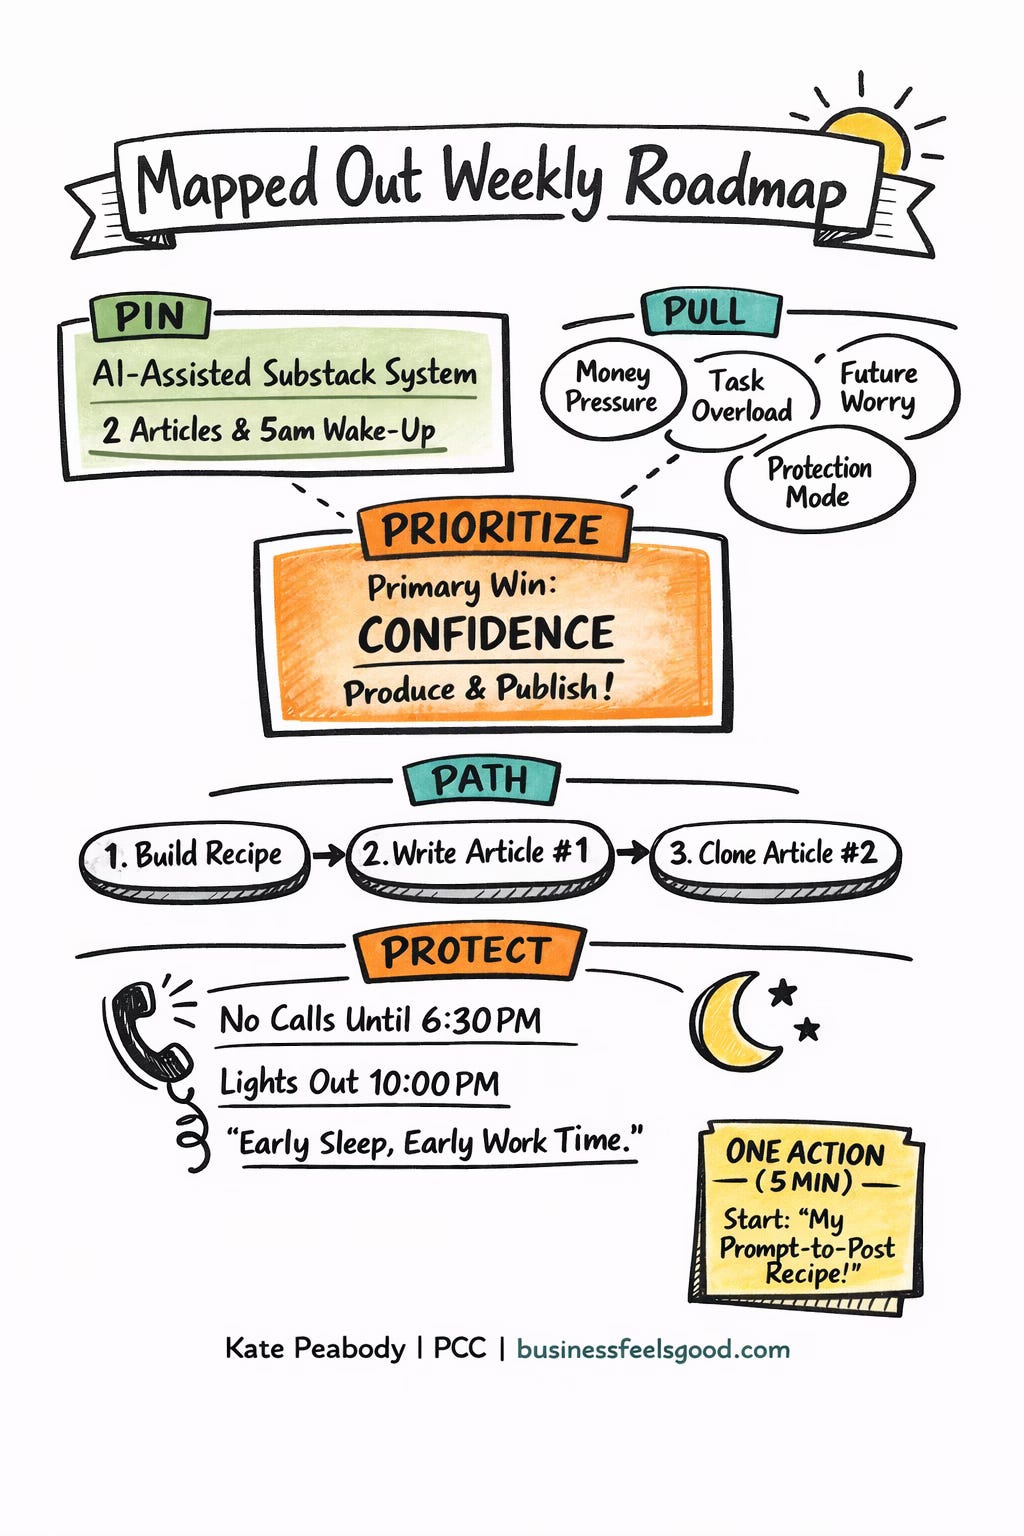 Mapped Out Weekly Roadmap
PIN
AI-Assisted Substack System
2 Articles & 5am Wake-Up
PULL
Money
Pressure
Task
Overload
Future
Worry
Protection
Mode
PRIORITIZE
Primary Win:
CONFIDENCE
Produce & Publish!
PATH
1. Build Recipe
2. Write Article #1
3. Clone Article #2
PROTECT
No Calls Until 6:30 PM
Lights Out 10:00 PM
“Early Sleep, Early Work Time.”
ONE ACTION
(5 MIN)
Start: “My
Prompt-to-Post
Recipe!”
Kate Peabody | PCC | businessfeelsgood.com